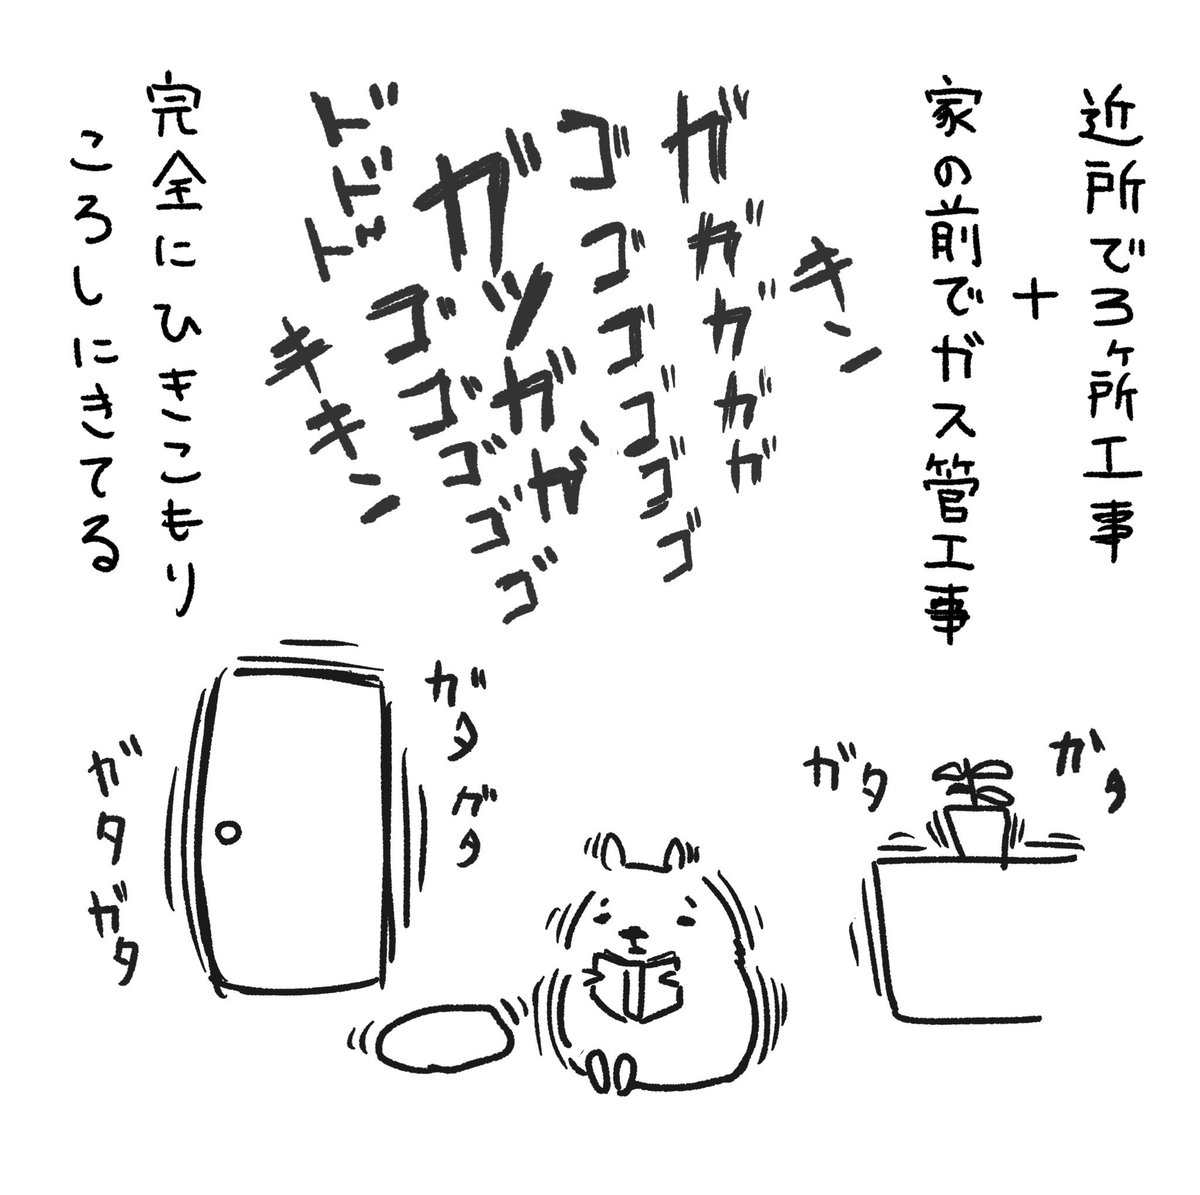 近所で3ヶ所工事
+
家の前でガス管工事
キン
ガガガガガ
ゴゴゴゴゴゴ
ガッガガ
ドドド
ゴゴゴゴゴ
キキン
完全にひきこもり
ころしにきてる
ガタガタ
ガタガタ
ガタ
ガタ